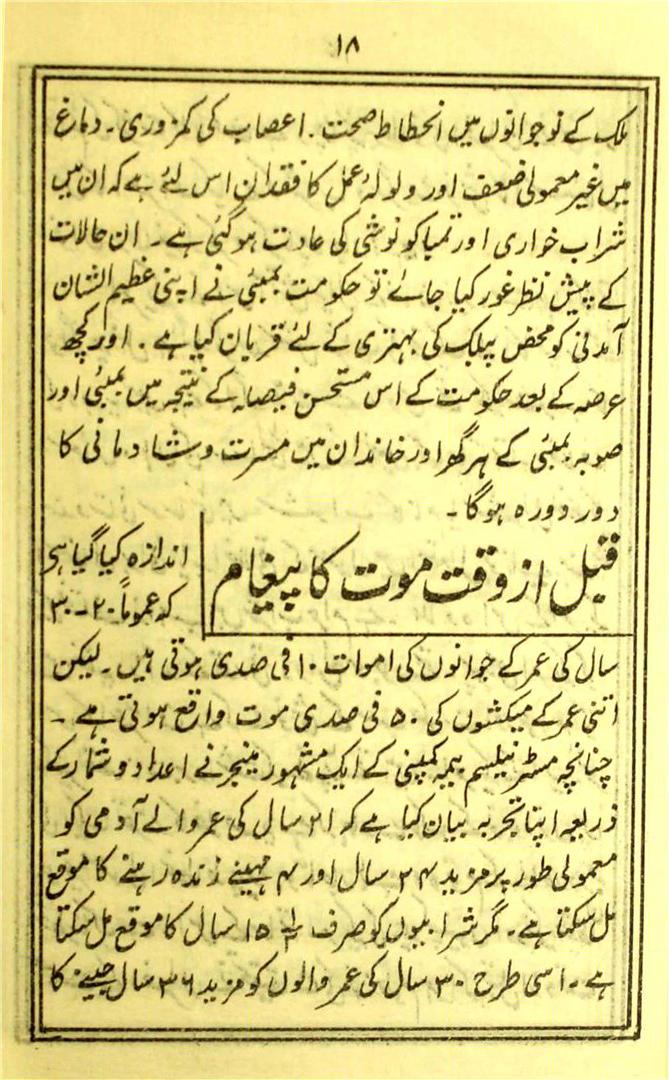 ۱۸
ملک کے نوجوانوں میں انحطاط صحت ۔ اعصاب کی کمزوری ۔ دماغ
میں غیر معمولی ضعف اور ولولۂ عمل کا فقدان اس لئے ہے کہ ان میں
شراب خواری اور تمباکو نوشی کی عادت ہوگئی ہے ۔ ان حالات
کے پیش نظر غور کیا جائے تو حکومت بمبئی نے اپنی عظیم الشان
آمدنی کو محض پبلک کی بہتری کے لئے قربان کیا ہے ۔ اور کچھ
عرصہ کے بعد حکومت کے اس مستحسن فیصلہ کے نتیجہ میں بمبئی اور
صوبہ بمبئی کے ہر گھر اور خاندان میں مسرت و شادمانی کا
دور دورہ ہوگا ۔
قبل از وقت موت کا پیغام
اندازہ کیا گیا ہی
کہ عموماً ۲۰ - ۳۰
سال کی عمر کے جوانوں کی اموات ۱۰ فی صدی ہوتی ہیں ۔ لیکن
اتنی عمر کے میکشوں کی ۵۰ فی صدی موت واقع ہوتی ہے ۔
چنانچہ مسٹر نیلسم بیمہ کمپنی کے ایک مشہور منیجر نے اعداد و شمار کے
ذریعہ اپنا تجربہ بیان کیا ہے کہ ۲۱ سال کی عمر والے آدمی کو
معمولی طور پر مزید ۲۴ سال اور ۴ مہینے زندہ رہنے کا موقع
مل سکتا ہے ۔ مگر شرابیوں کو صرف ۱۵ سال کا موقع مل سکتا
ہے ۔ اسی طرح ۳۰ سال کی عمر والوں کو مزید ۳۶ سال جینے کا